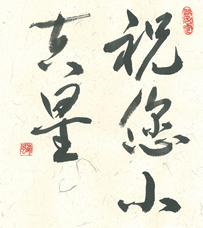 祝您小
星